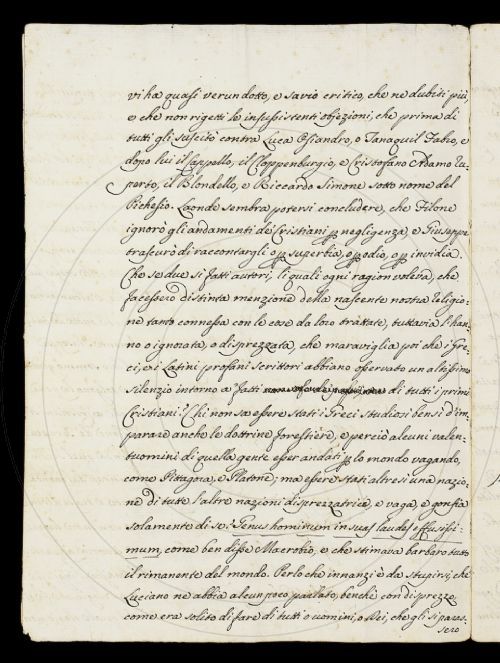 vi ha quasi verun dotto, e savio critico, che ne dubiti più,
e che non rigetti le insussistenti objezioni, che prima di
tutti gli suscitò contra Luca Osiandro, o Tanaquil Fabro, e
dopo lui il Cappello, il Cloppenburgio, e Cristofano Adamo Ru-
perto, il Blondello, e Riccardo Simone sotto nome del
Pichesio. Laonde sembra potersi concludere, che Filone
ignorò gli andamenti de' Cristiani p negligenza, e Giuseppe
trascurò di raccontargli o p superbia, o p odio, o p invidia.
Che se due sì fatti autori, li quali ogni ragion voleva, che
facessero distinta menzione della nascente nostra Religio:
ne tanto connessa con le cose da loro trattate, tuttavia l'han
no o ignorata, o disprezzata, che maraviglia poi che i Gre-
ci, e i Latini profani scrittori abbiano osservato un altissimo
silenzio intorno a' fatti di tutti i primi
Cristiani? Chi non sa essere stati i Greci studiosi bensì d'im-
parare anche le dottrine forestiere, e perciò alcuni valen-
tuomini di quella gente esser andati p lo mondo vagando,
come Pittagora, e Platone; ma essere stati altresì una nazio-
ne di tutte l'altre nazioni disprezzatrice, e vaga, e gonfia
solamente di se: Genus hominum in suas laudes effusissi-
mum, come ben disse Macrobio, e che stimava barbaro tutto
il rimanente del mondo. Perlochè innanzi è da stupirsi, che
Luciano ne abbia alcun poco parlato, benchè con disprezzo,
come era solito di fare di tutti o uomini, o Dei, che gli si pares-
sero